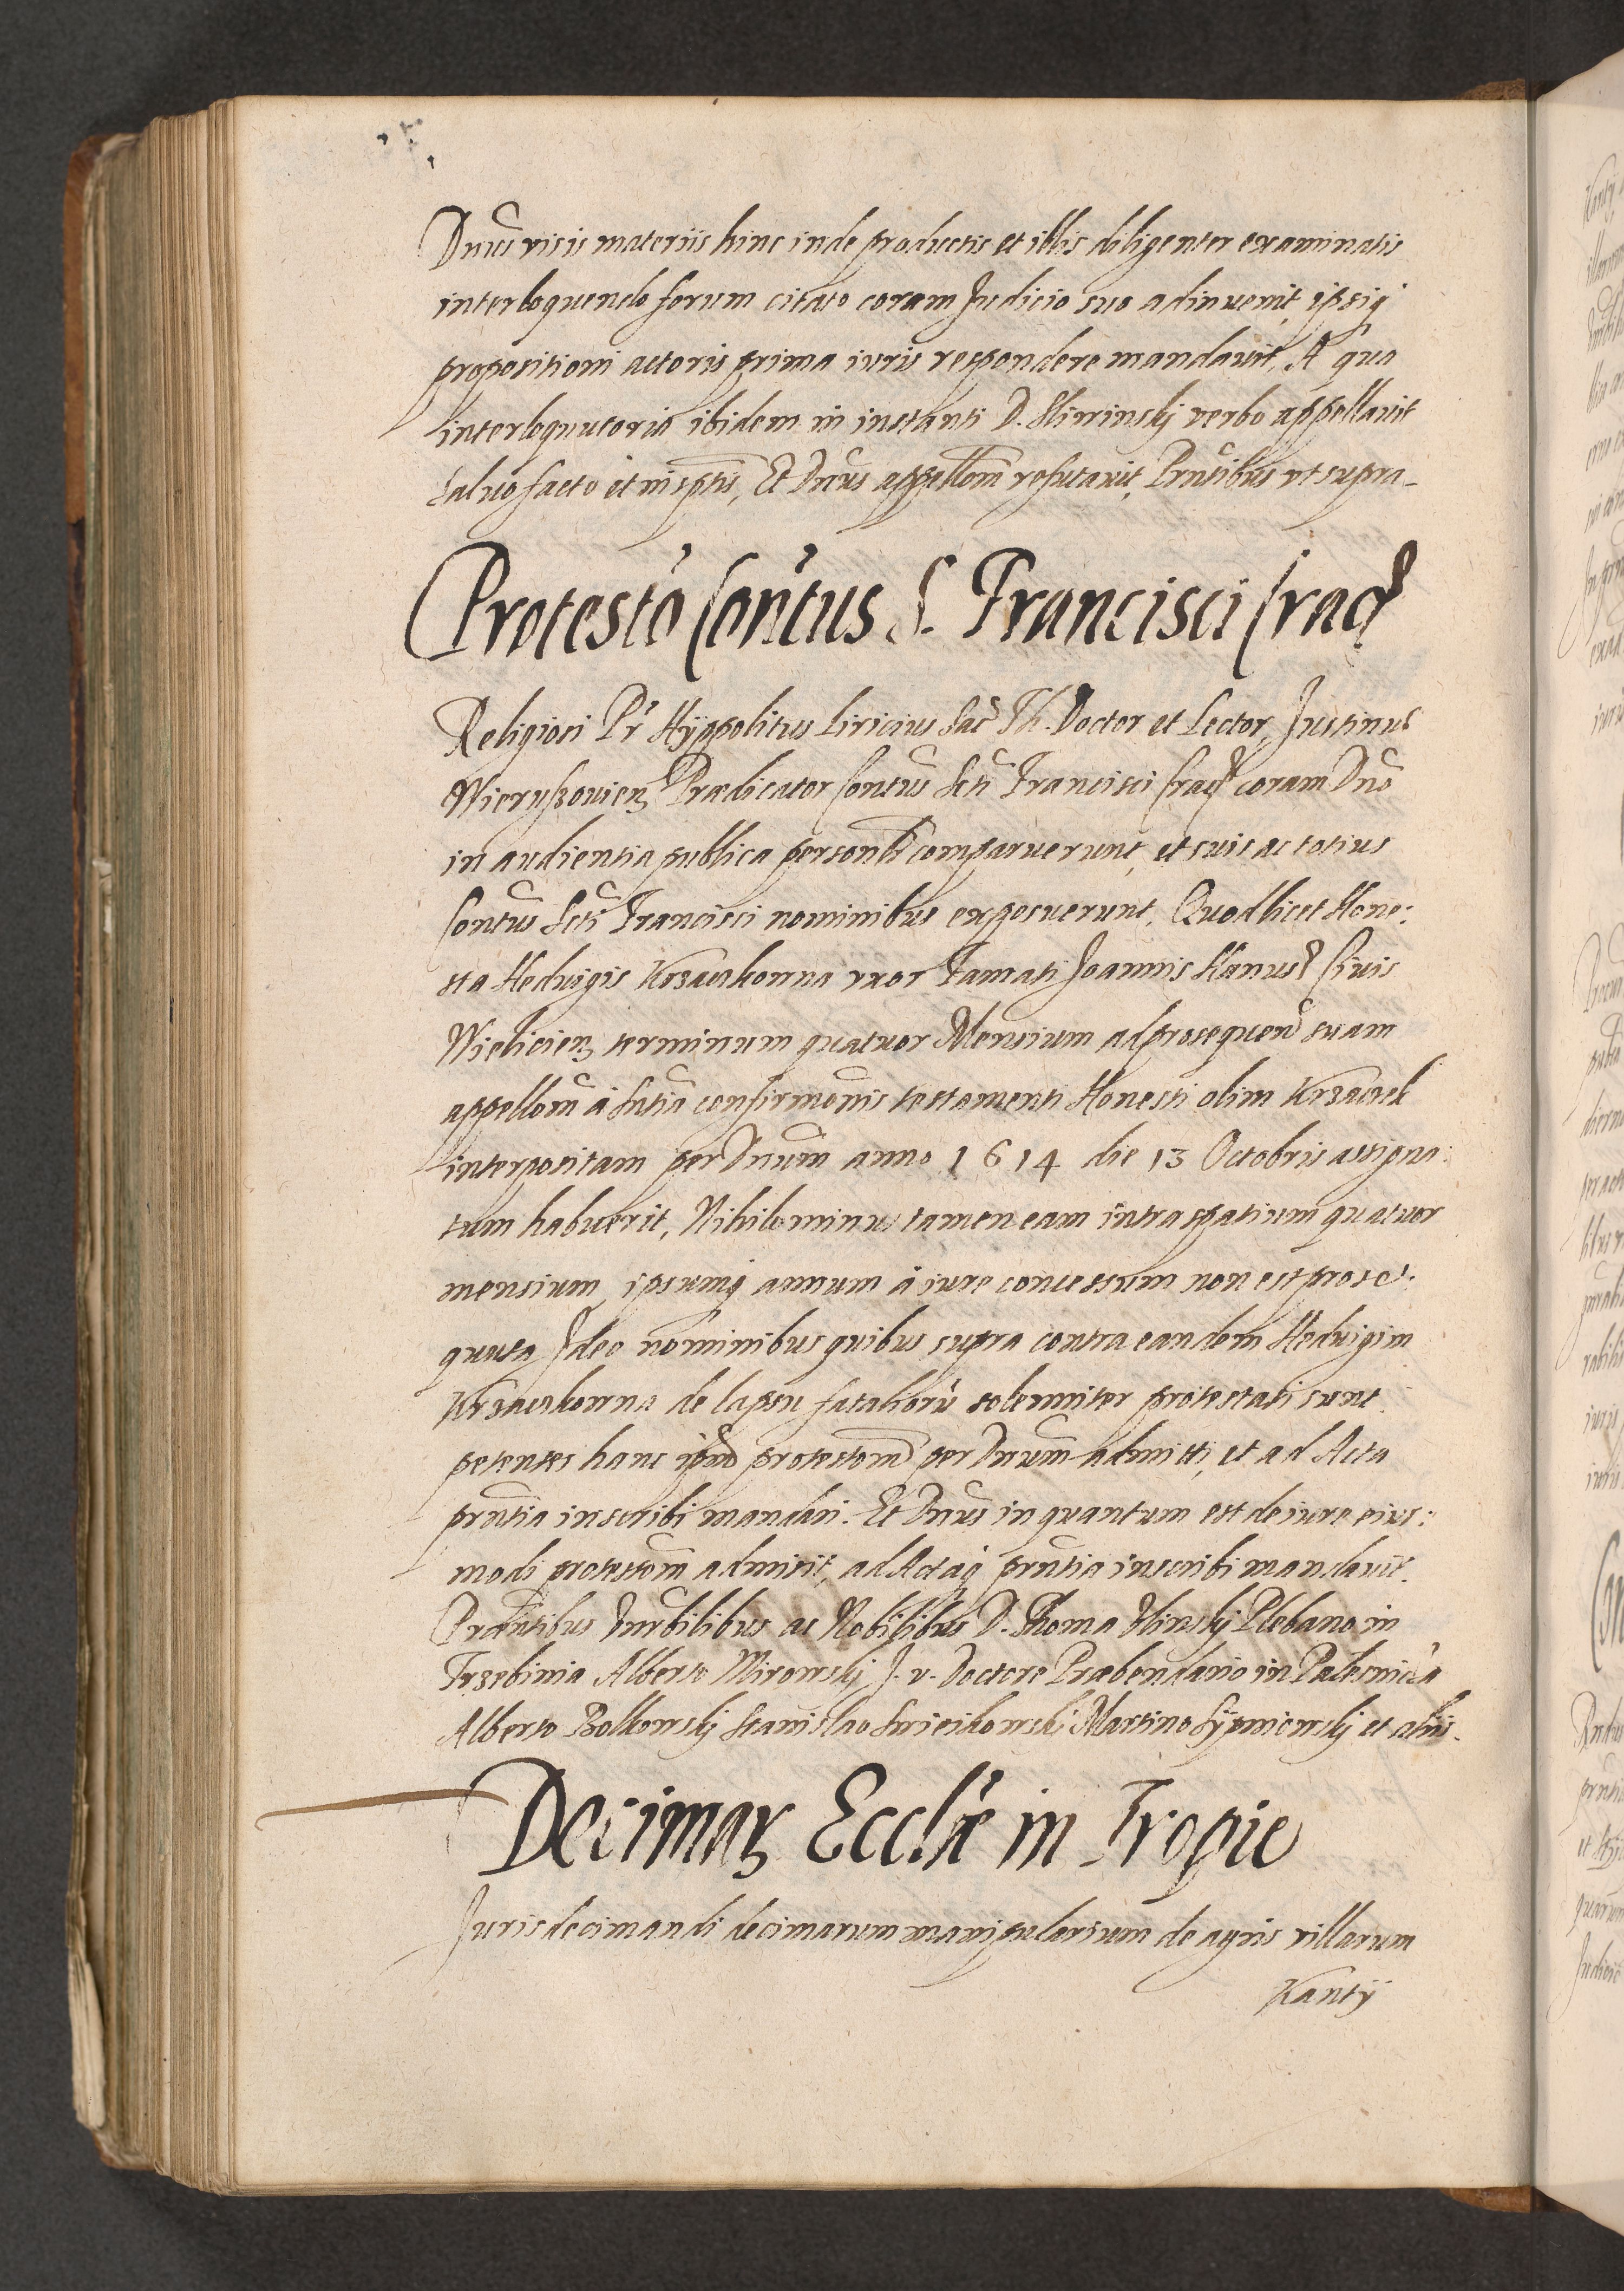 Dnūs visis materiis hinc inde productis et illis diligenter examinatis
interloquendo forum citato coram Judicio suo adinuenit, ipsiq
propositioni actoris prima iuris respondere mandauit, A qua
interloquutoria ibidem in instanti D. Slivinskj verbo appellauit
saluo facto et inscptis, Et Dnūs appellōm refutauit, Prntibus vt supra_
Protestō Contus S. Francisci Crac
Religiosi Pr Hyppolitus Liricius Sac Th. Doctor et Lector, Justinus
Wieruszouien Prædicator Contus Scti Francisci Crac coram Dno
in audientia publica personlr comparuerunt, et suis ac totius
Contus Scti Francisci nominibus exposuerunt. Quod licet Hone:
sta Heduigis Krzaczkowna vxor Famati Joannis Hanus Ciuis
Wielicien terminum quatuor Mensium ad prosequen suam
appellom à sntia confirmonis testamenti Honesti olim Krzaczek
interpositam per Dnum anno 1614 die 13 Octobris assigna:
tum habuerit, Nihilominus tamen eam intra spatium quatuor
mensium, ipsumq annum à iure concessum non est prose:
quuta, Ideo nominibus quibus supra contra eandem Heduigim
Krzaczkowna de lapsu fataliorū solenniter protestati sunt
petentes hanc protestōm per Dnum admitti, et ad Acta
prntia inscribi mandari. Et Dnūs in quantum est de iure eius:
modi protestōm admisit, ad Actaq prntia inscribi mandauit.
Præntibus Vnrbilibus ac Nobilibus D. Thoma Slinskj Plebano in
Trzebinia Alberto Mirowskj J. v. Doctore Præbendario in Palecznicza
Alberto Bolkowskj Stanislao Swieikowski Martino Sypniewskj et aliis.
Decimar Ecclie in Tropie
Juris decimandi decimarum manipularium de agris villarum
Kanty